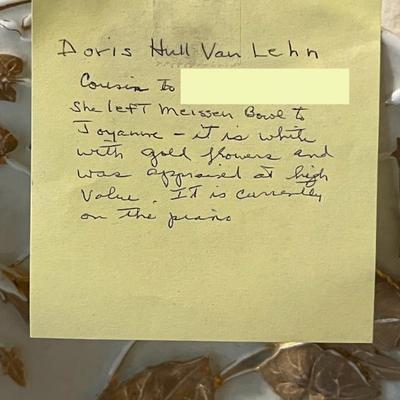 Doris Hull Van Lehn
Cousin to
She left Meissen Bowl to
Joyanne - it is white
with gold flowers and
was appraised at high
value. It is currently
on the piano